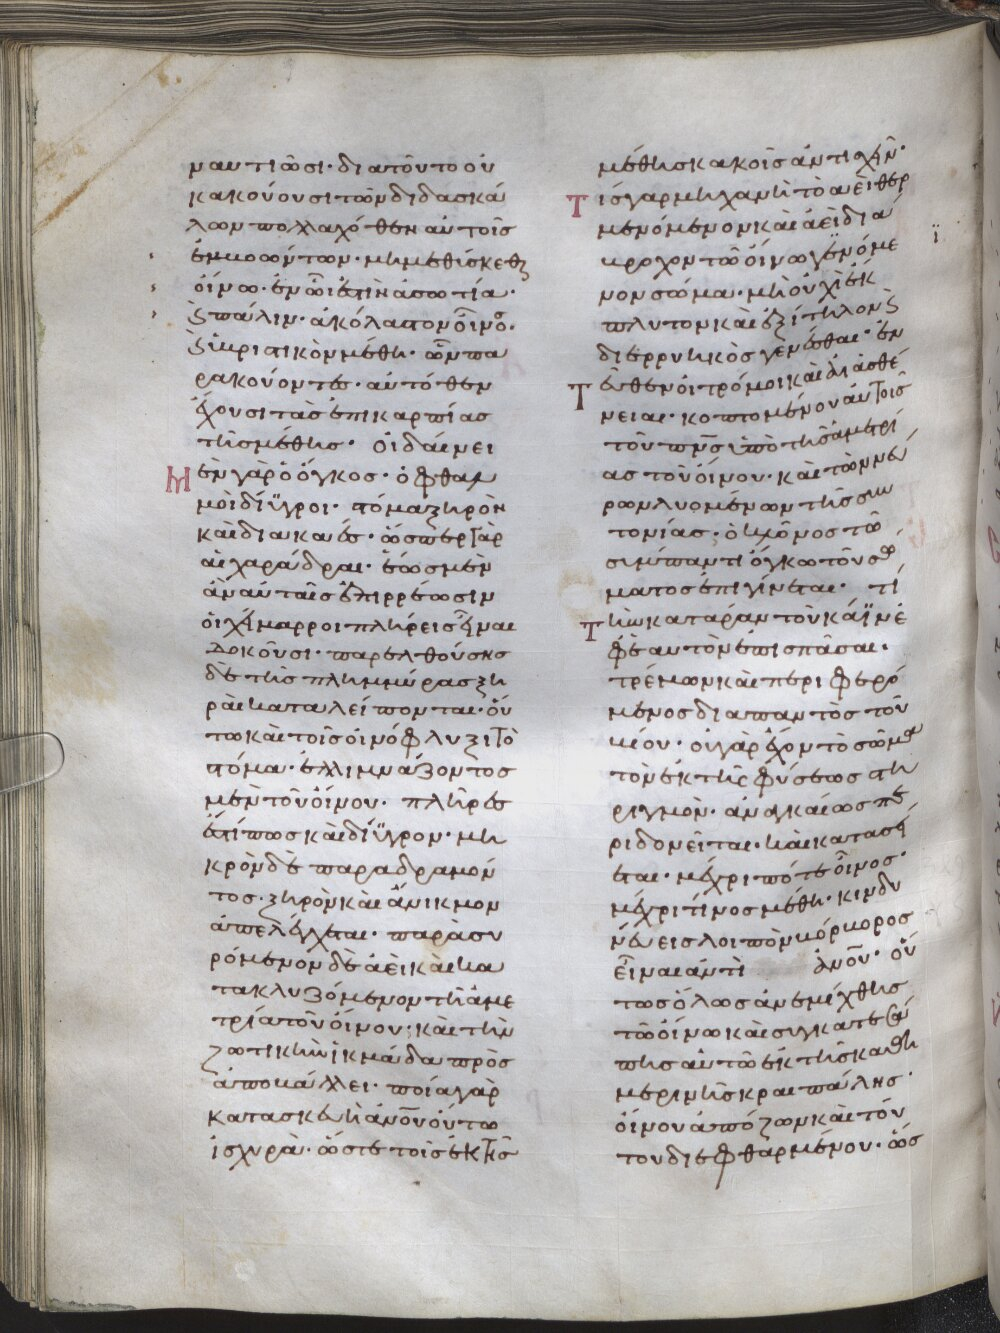 ναντιῶσι· διὰ τοῦτο οὐ
κ ἀκούουσι τῶν διδασκά
λων πολλαχόθεν αὐτοῖς
ἐμβοώντων· μὴ μεθύσκεσθ
οἴνω· ἐν ὧι ἐστὶν ἀσωτία·
πάλιν· ἀκόλαστον οἶνος·
ὑβριστικὸν μέθη· ὧν πα
ρακούοντες· αὐτόθεν
ἔχουσι τὰς ἐπικαρπίας
τῆς μέθης· οἰδαίνει
μὲν γὰρ ὁ ὄγκος· ὀφθαλ
μοὶ δίϋγροι· στόμα ξηρὸν
καὶ διακαές· ὥσπερ γὰρ
αἱ χαράδραι· ἕως μὲν
ἂν αὐταῖς ἐπιρρέωσιν
οἱ χείμαρροι πλήρεις εἶναι
δοκοῦσι· παρελθούσης
δὲ τῆς πλημμύρας ξη
ραὶ καταλείπονται· οὕ
τω καὶ τοῖς οἰνόφλυξι τὸ
στόμα· ἐλλιμνάζοντος
μὲν τοῦ οἴνου· πλῆρες
ἐστί πως καὶ δίϋγρον· μι
κρὸν δὲ παραδραμόν
τος· ξηρὸν καὶ ἄνικμον
ἀπελέγχεται· παρασυ
ρόμενον δὲ ἀεὶ καὶ κα
τακλυζόμενον τῆ ἀμε
τρία τοῦ οἴνου· καὶ τὴν
ζωτικὴν ἰκμάδα προσ
αποβάλλει· ποία γὰρ
κατασκευὴ ἀνου οὕτω
ἰσχυρὰ· ὥστε τοῖς ἐκ τῆς
μέθης κακοῖς ἀντισχεῖν·
Τίς γὰρ μηχανὴ τὸ ἀεὶ θερ
μενόμενον καὶ ἀεὶ διά
βροχον τῶ οἴνω γενόμε
νον σῶμα· μὴ οὐχὶ ἔκ
πλυτον καὶ ἐξίτηλον
διερρυηκὸς γενέσθαι· ἐν
τεῦθεν οἱ τρόμοι καὶ αἱ ἀσθέ
νειαι· κοπτομένου αὐτοῖς
τοῦ πνς ὑπὸ τῆς ἀμετρί
ας τοῦ οἴνου· καὶ τῶν νεύ
ρων λυομένων τῆς συν
τονίας· ὁ κλόνος τῶ
σύμπαντι ὄγκω τοῦ σώ
ματος ἐπιγίνεται· τί
Τὴν κατάραν τοῦ κάϊν ἐ
φ' ἑαυτὸν ἐπισπᾶσαι·
τρέμων καὶ περιφερό
μενος διαπαντὸς τοῦ
βίου· οὐ γὰρ ἔχον τὸ σῶμα
τὸν ἐκ τῆς φύσεως στη
ριγμὸν· ἀναγκαίως πε
ριδονεῖται· καὶ κατασεί
εται· μέχρι πότε οἶνος·
μέχρι τίνος μέθη· κινδυ
νεύεις λοιπὸν βόρβορος
εἶναι ἀντὶ ἀνου· οὕ
τως ὅλως ἀνεμίχθης
τῶ οἴνω καὶ συγκατεσά
πης αὐτῶ ἐκ τῆς καθη
μερινῆς κραιπάλης·
οἴνου ἀπόζων καὶ τού
του διεφθαρμένου· ὡς